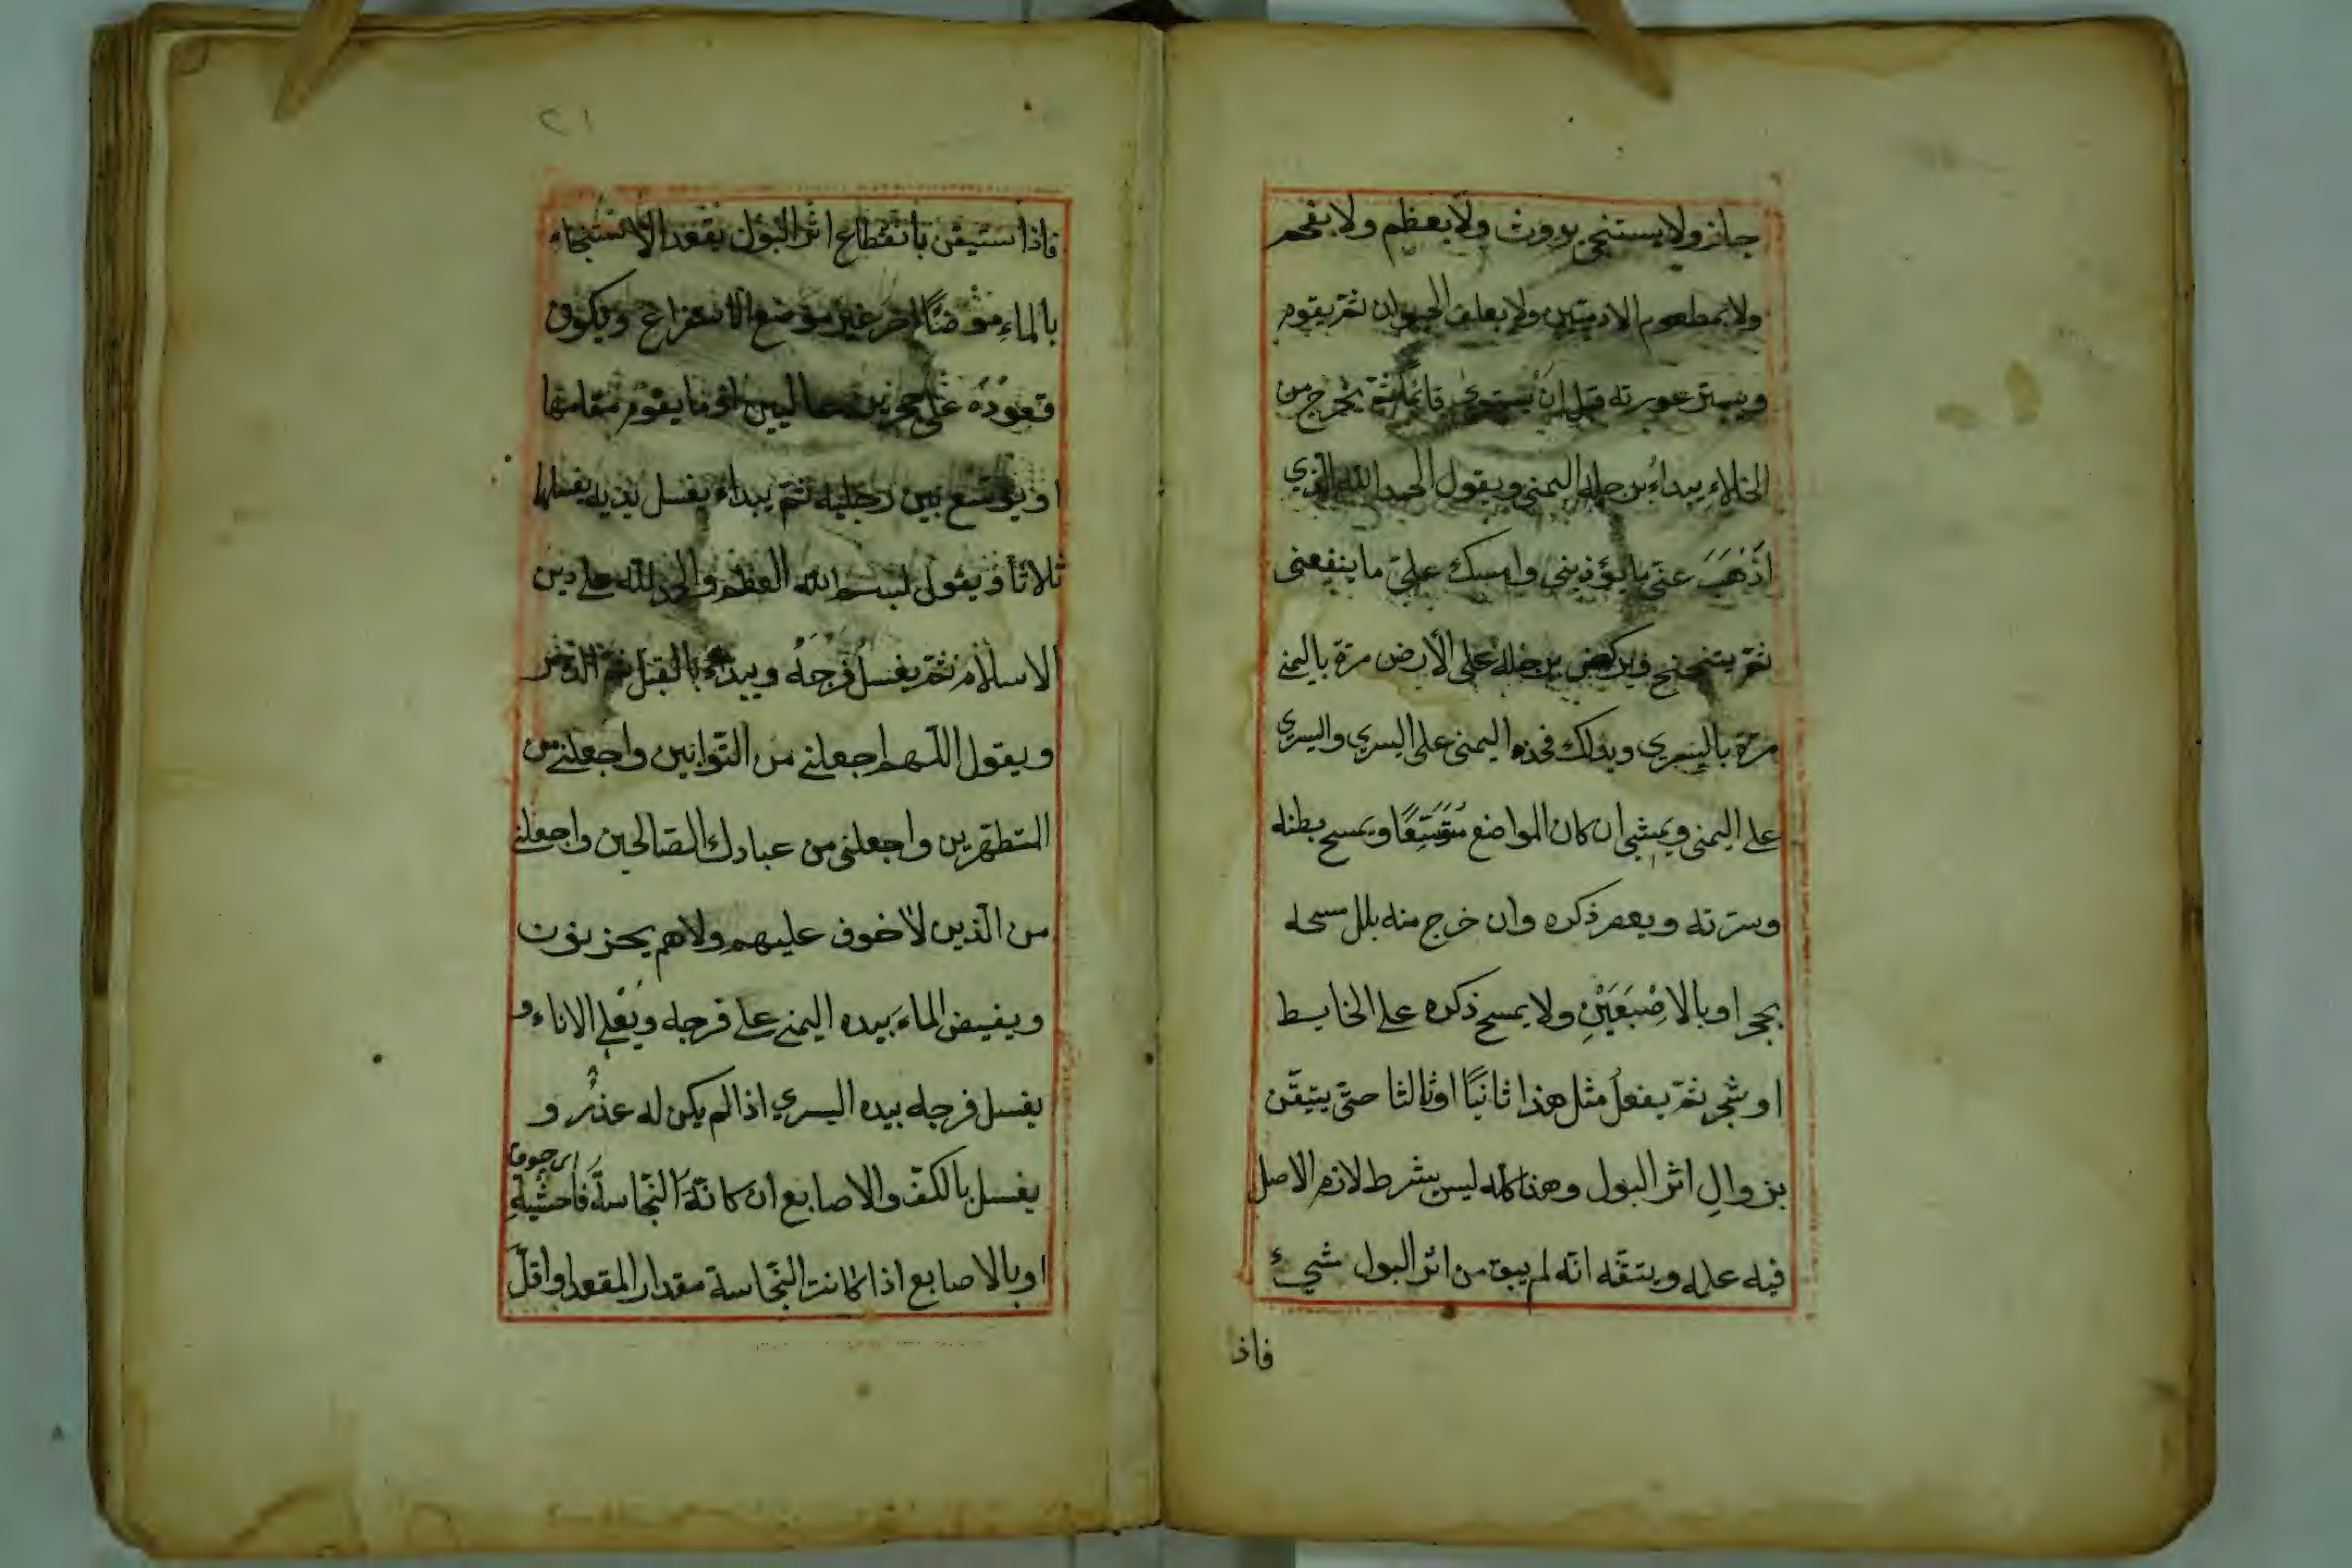 جايز ولا يستنجي بروث ولا بعظم ولا بفحم
ولا بمطعوم الادميين ولا بعلف الحيوان ثمّ يقوم
ويستر عورته قبل ان يستوى قائما ثمّ يخرج من
الخلاءِ يبداءُ برجله اليمنى ويقول الحمد الله الّذي
اَذْهَبَ عنّى ما يؤذينى وامسك علىّ ما ينفعنى
ثمّ يتنحنح ويركض برجله على الأرض مرّة باليمنى
مرّة باليسرى ويدلك فخذه اليمنى على اليسرى واليسرى
على اليمنى ويمشى ان كان المواضع مُتَّسَعًا ويمسح بطنه
وسرّته ويعصر ذكره وان خرج منه بلل مسحه
بحجر او بالاِصْبَعَيْنِ ولا يمسح ذكره على الحايط
او شجر ثمّ يفعلُ مثل هذا ثانيًا او ثالثا حتّى يتيقّن
بزوالِ اثر البول وهذا كله ليس بشرط لازم الاصل
فيه علمه ويتيقّنه انّه لم يبق من اثر البول شيءٌ
فاذ
٢١
فاذا ستيقن بانقطاع اثر البول يقعد الاستنجاء
بالماءِ موْضعًا اخر غير موْضع الاستفراغ ويكون
قعودُهُ على حجرين عاليين او ما يقوم مقامها
او يوسّع بين رجليه ثمّ يبداء يغسل يديه يغسلها
ثلاثا ويقول بسم الله العظيم والحمد لله على دين
الاسلام ثمّ يغسل فرجَهُ ويبداء بالقبل ثمّ الدّبر
ويقول اللّهم اجعلني من التّوابين واجعلني من
المتطهّرين واجعلنى من عبادك الصّالحين واجعلني
من الّذين لاخوف عليهم ولاهم يحزنون
ويفيض الماء بيده اليمنى على فرجه ويُعْلى الاناء و
يغسل فرجه بيده اليسري اذا لم يكن له عذرٌ و
يغسل بالكفّ والاصابع ان كانة النّجاسةُ فاحشةٍ
او بالاصابع اذا كانت النّجاسة مقدار المقعد او اقلّ